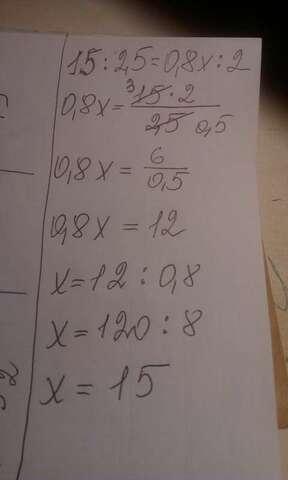 15 : 2,5 = 0,8x : 2
0,8x = 3 15 · 2 / 2,5 0,5
0,8x = 6 / 0,5
0,8x = 12
x = 12 : 0,8
x = 120 : 8
x = 15